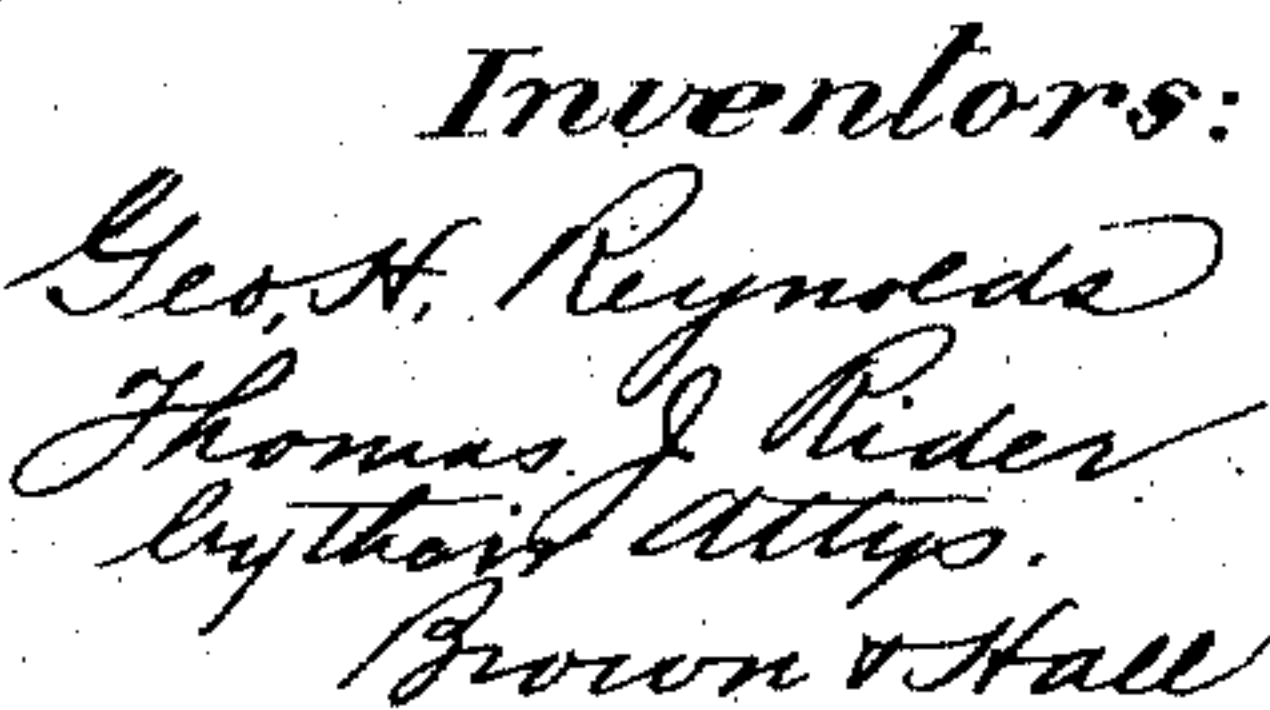 Inventors:
Geo. H. Reynolds
Thomas J Rider
by their Attys.
Brown & Hall